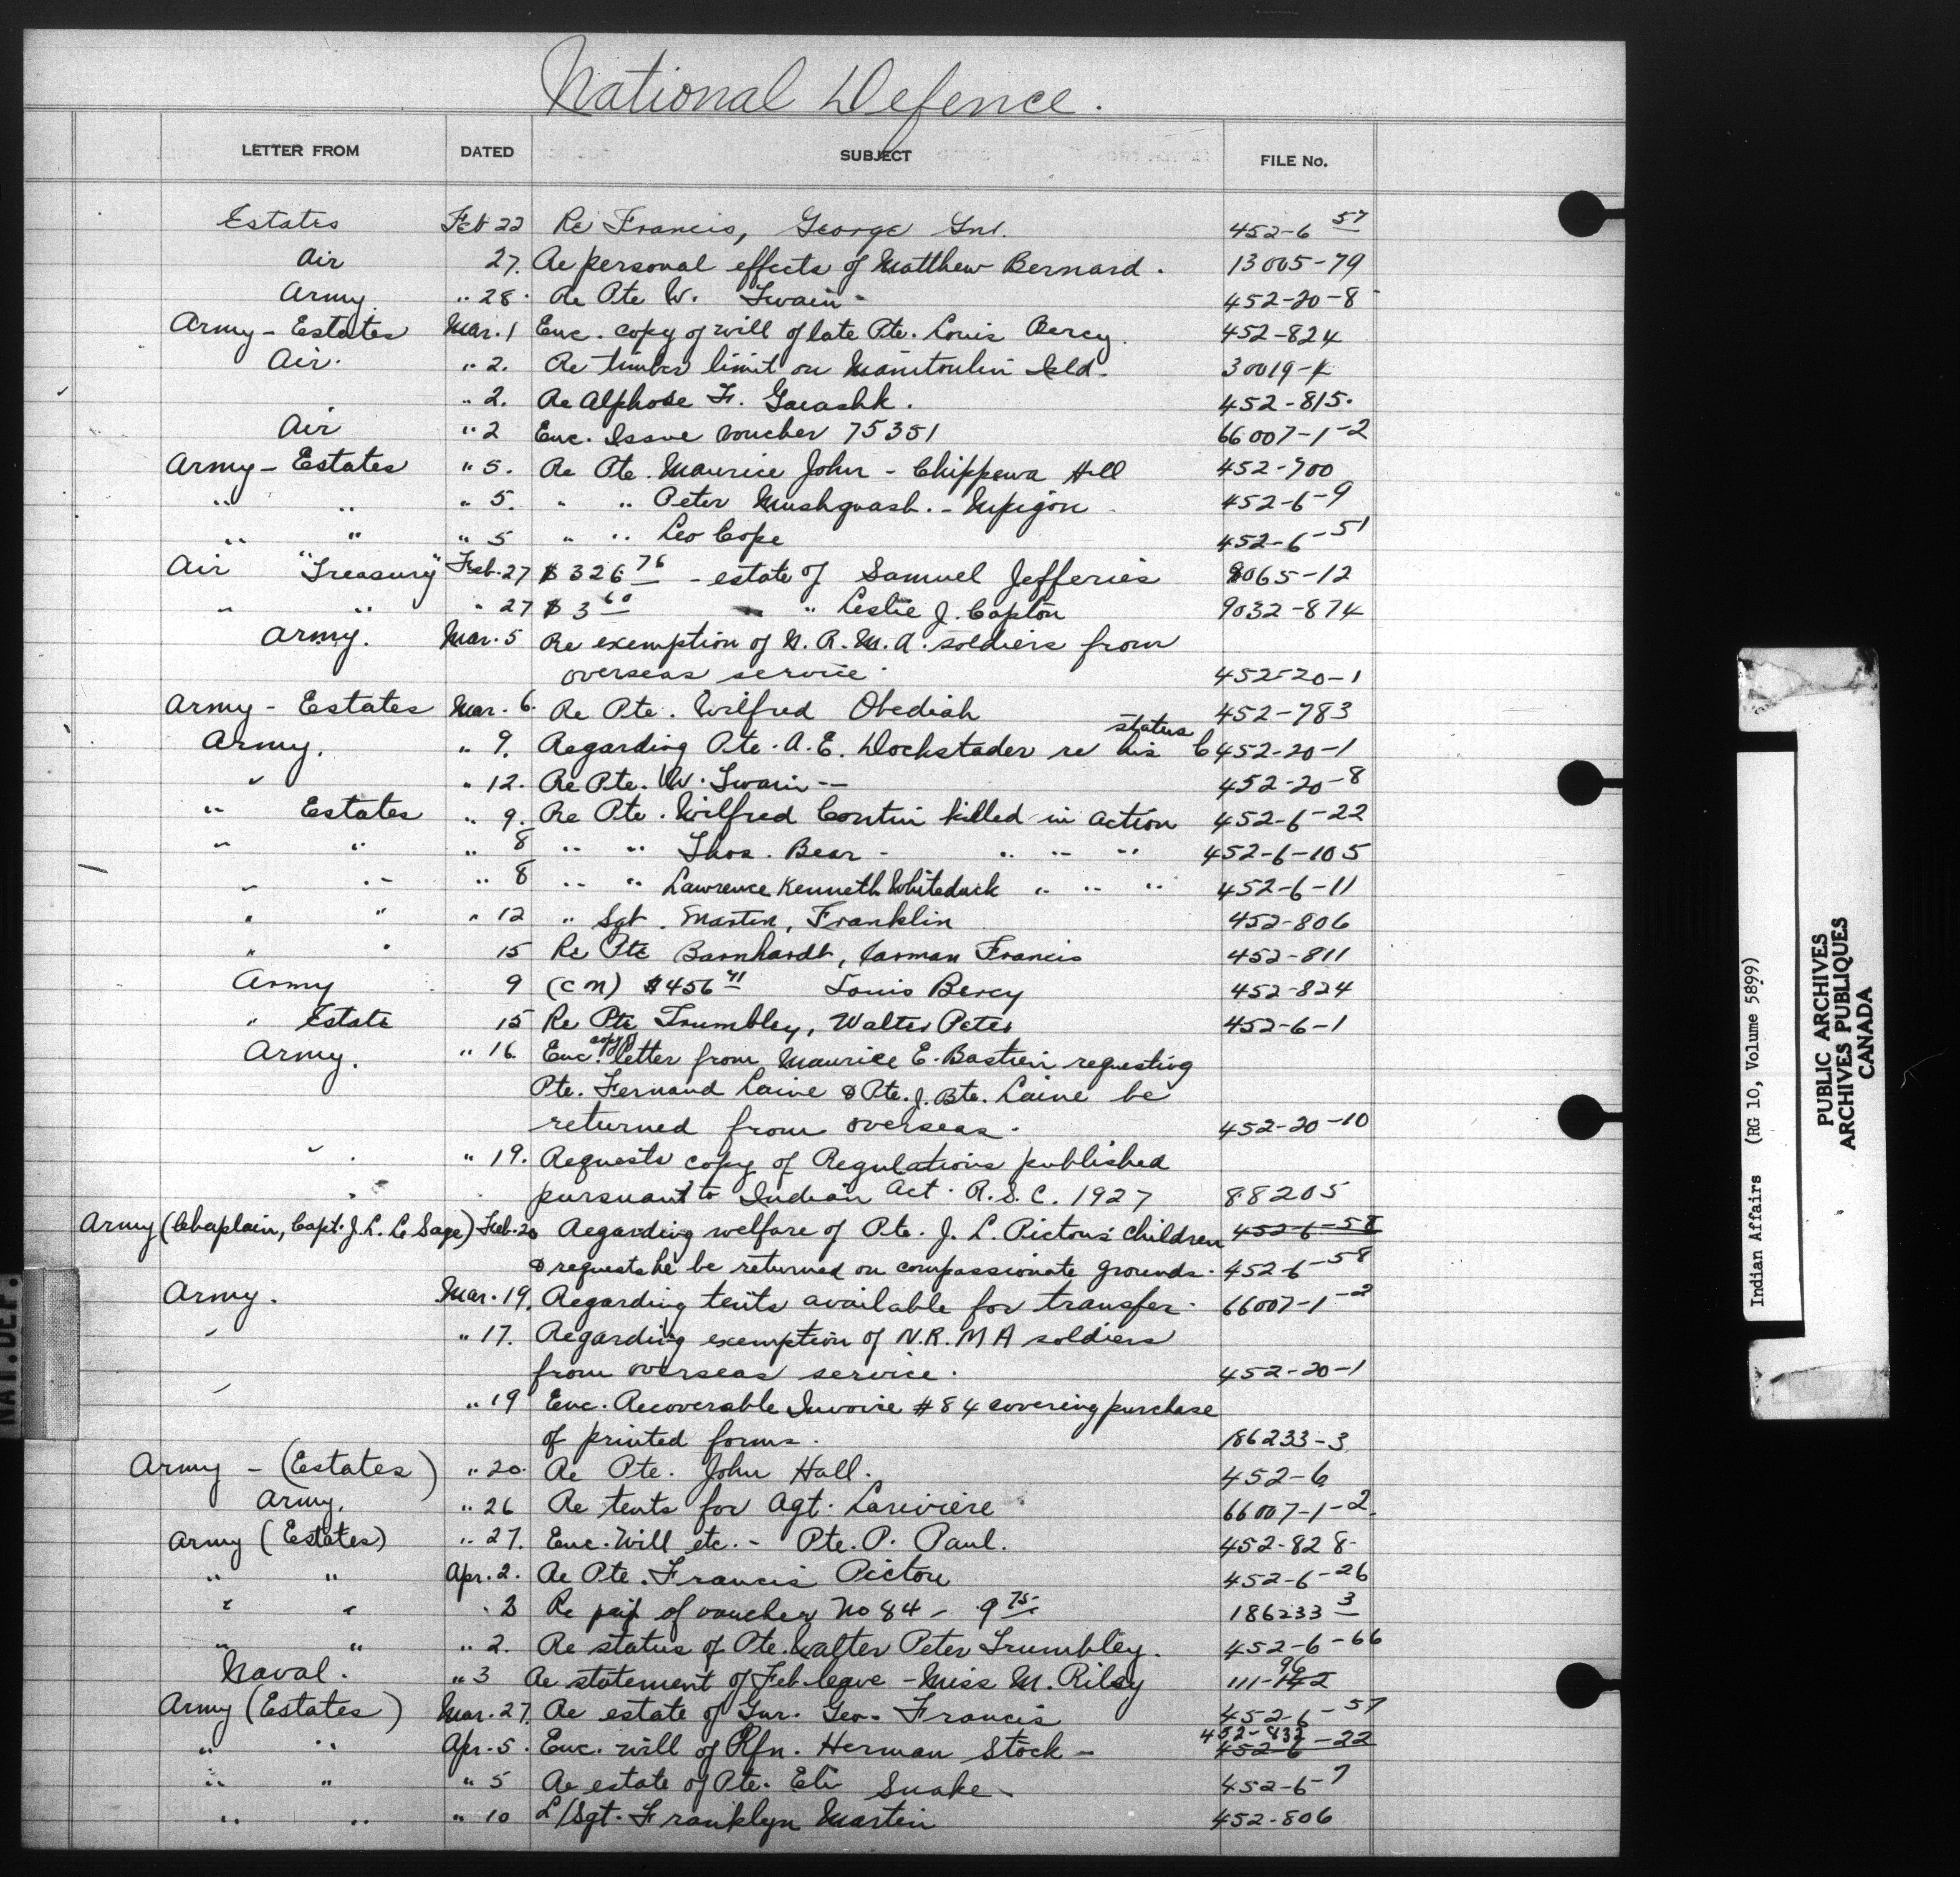 National Defence.
LETTER FROM DATED SUBJECT FILE No.
Estates Feb 22 Re Francis, George Gnr. 452-6 57
Air 27. Re personal effects of Matthew Bernard. 13005-79
Army " 28. Re Pte W. Swain - 452-20-8
Army - Estates Mar. 1 Enc. copy of will of late Pte. Louis Bercy. 452-824
Air. " 2. Re timber limit on Manitoulin Isld. 30019-1
" 2. Re Alphose Fr. 452-815.
Air " 2 Enc. Issue Voucher 75351 66007-1-2
Army - Estates " 5. Re Pte. Maurice John - Chippewa Hill 452-700
" " " 5. " " Peter Mushquash. - Nipigon 452-6-9
" " " 5 " " Leo Cope 452-6-51
Air "Treasury" Feb. 27 $326 76 - estate of Samuel Jefferies 8065-12
" " " 27 $3 60 " Leslie J. Capton 9032-874
Army. Mar. 5 Re exemption of N.R.M.A. soldiers from
overseas service. 452-20-1
Army - Estates Mar. 6. Re Pte. Wilfred Obediah 452-783
Army. " 9. Regarding Pte. A.E. Dockstader re his status 452-20-1
" " 12. Re Pte. W. Swain -- 452-20-8
" Estates " 9. Re Pte. Wilfred Contin killed in action 452-6-22
" " " 8 " " Thos. Bear - " " " 452-6-105
" " " 8 " " Lawrence Kenneth Whiteduck " " " 452-6-11
" " " 12 " Sgt. Martin, Franklin 452-806
" " 15 Re Pte Barnhardt, Carman Francis 452-811
Army 9 (CN) $456 41 Louis Bercy 452-824
" Estate 15 Re Pte Trumbley, Walter Peter 452-6-1
Army. " 16. Enc. copy of letter from Maurice E. Bastien requesting
Pte. Fernand Laine & Pte. J. Bte. Laine be
returned from overseas. 452-20-10
" " 19. Requests copy of Regulations published
pursuant to Indian Act. R.S.C. 1927 88205
Army (Chaplain, Capt. J.L. Le Sage) Feb. 20 Regarding welfare of Pte. J. L. Picton's children 452-6-58
& requests he be returned on compassionate grounds. 452-6-58
Army. Mar. 19. Regarding tents available for transfer. 66007-1-2
" " 17. Regarding exemption of N.R.M A soldiers
from overseas service. 452-20-1
" " 19 Enc. Recoverable Invoice #84 covering purchase
of printed forms. 186233-3
Army - (Estates) " 20. Re Pte. John Hall. 452-6
Army. " 26 Re tents for Agt. Lariviere 66007-1-2.
Army (Estates) " 27. Enc. Will etc. - Pte. P. Paul. 452-828
" " Apr. 2. Re Pte. Francis Picton 452-6-26
" " " 2 Re of voucher No 84 - 9 75 186233 3
" " " 2. Re status of Pte. Walter Peter Trumbley. 452-6-66
Naval. " 3 Re statement of Feb leave - Miss M. Riley 111-
Army (Estates) Mar. 27. Re estate of Gnr. Geo. Francis 452-6-57
" " Apr. 5. Enc. will of Rfn. Herman Stock - 452-832 452-6-22
" " " 5 Re estate of Pte. Eli Snake - 452-6-7
" " " 10 L/Sgt. Franklyn Martin 452-806
NAT. DEF.
Indian Affairs (RG 10, Volume 5899)
PUBLIC ARCHIVES
ARCHIVES PUBLIQUES
CANADA